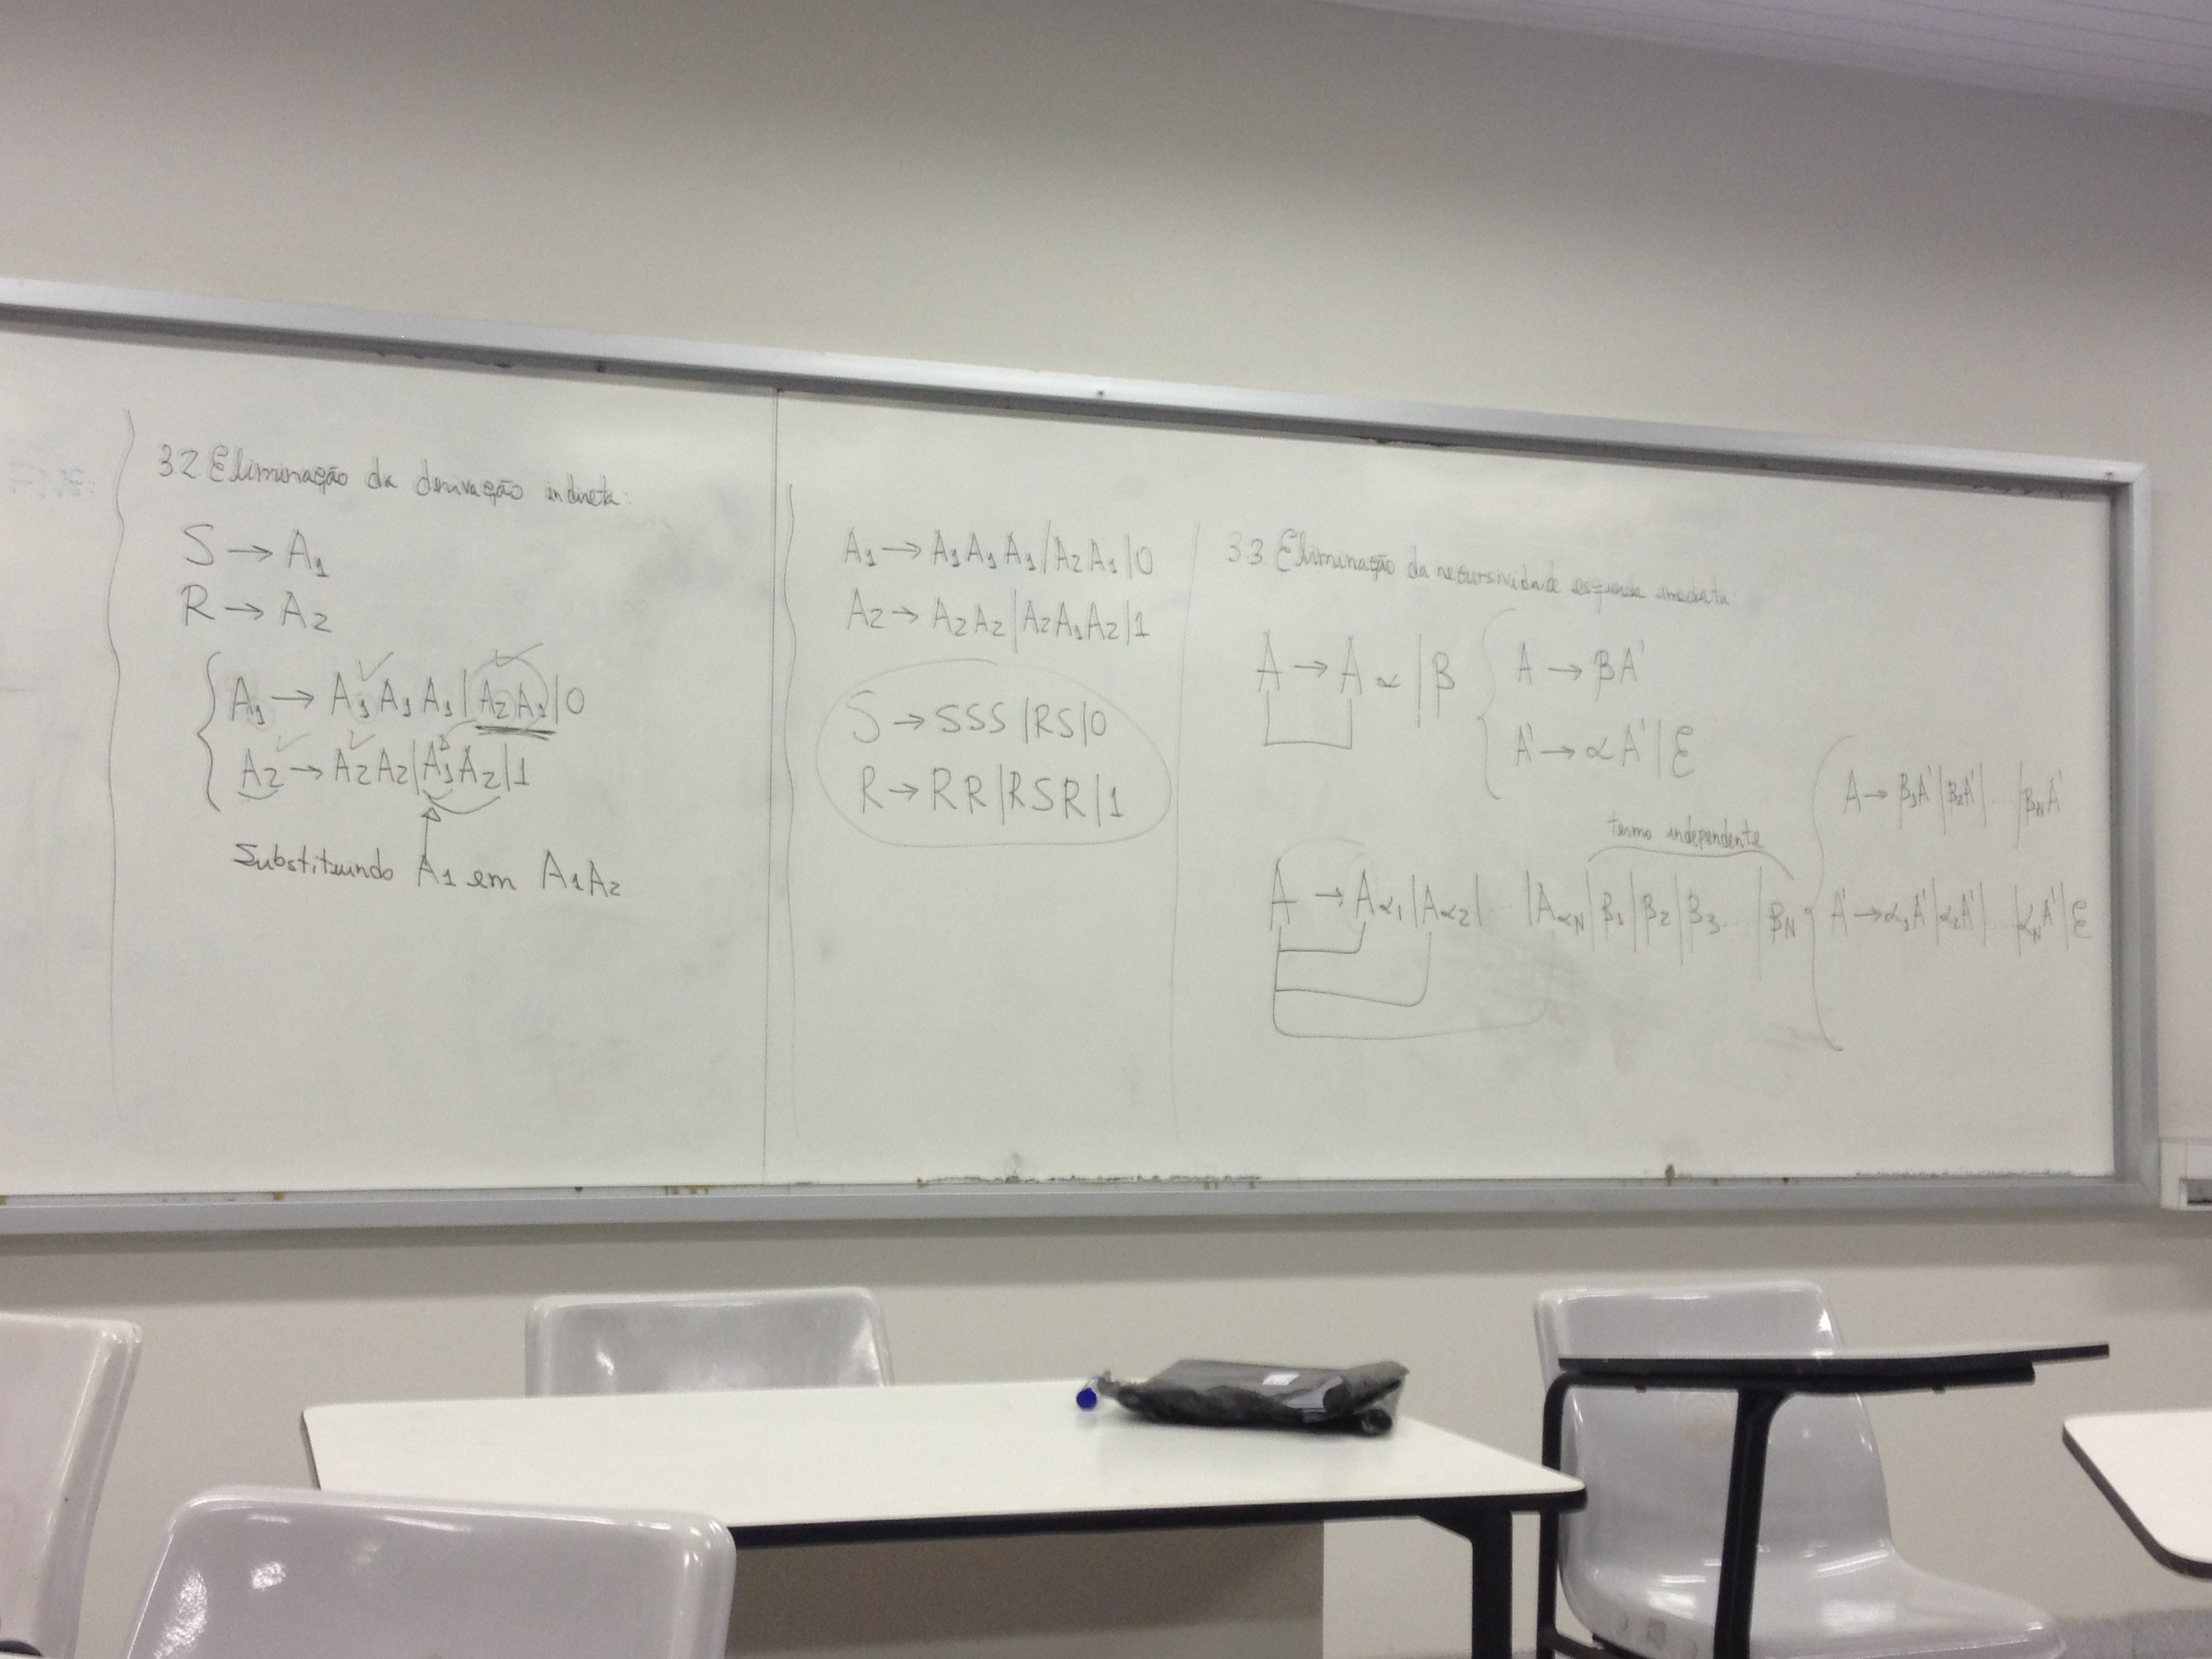 3.2. Eliminação da derivação indireta:
S → A₁
R → A₂
A₁ → A₁A₁A₁|A₂A₁|0
A₂ → A₂A₂|A₁A₂|1
Substituindo A₁ em A₁A₂
A₁ → A₁A₁A₁|A₂A₁|0
A₂ → A₂A₂|A₂A₁A₂|1
S → SSS|RS|0
R → RR|RSR|1
3.3. Eliminação da recursividade esquerda imediata:
A → Aα|β
A → βA'
A' → αA'|ε
termo independente
A → Aα₁|Aα₂|...|Aα_N|β₁|β₂|β₃...|β_N
A → β₁A'|β₂A'|...|β_NA'
A' → α₁A'|α₂A'|...|α_NA'|ε